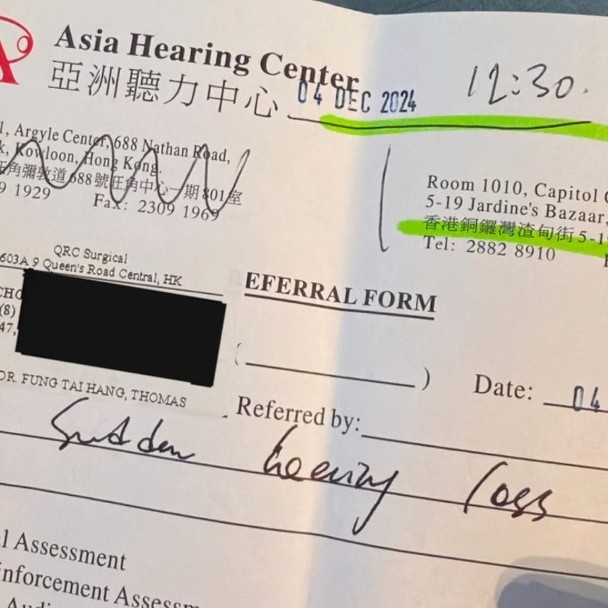 Asia Hearing Center
亞洲聽力中心 04 DEC 2024 12:30.
Argyle Center, 688 Nathan Road,
Kowloon, Hong Kong.
角彌敦道688號旺角中心一期801室
9 1929 Fax: 2309 1969
Room 1010, Capitol
5-19 Jardine's Bazaar,
香港銅鑼灣渣甸街5-1
Tel: 2882 8910
QRC Surgical
603A 9 Queen's Road Central, HK
EFERRAL FORM
CHO
(8)
47,
( ) Date: 04
DR. FUNG TAI HANG, THOMAS
Referred by:
Sudden hearing loss
l Assessment
inforcement Assess